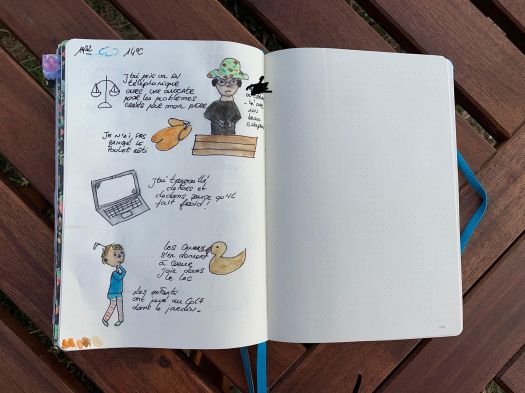 14°C
J'ai pris un RV
téléphonique
avec une avocate
pour les problèmes
créés par mon père
un
beau
chapeau
Je n'ai pas
mangé le
poulet rôti
J'ai travaillé
dehors et
dedans parce qu'il
fait froid !
Les canards
s'en donnent
à cœur
joie dans
le lac
Les enfants
ont joué au golf
dans le jardin.